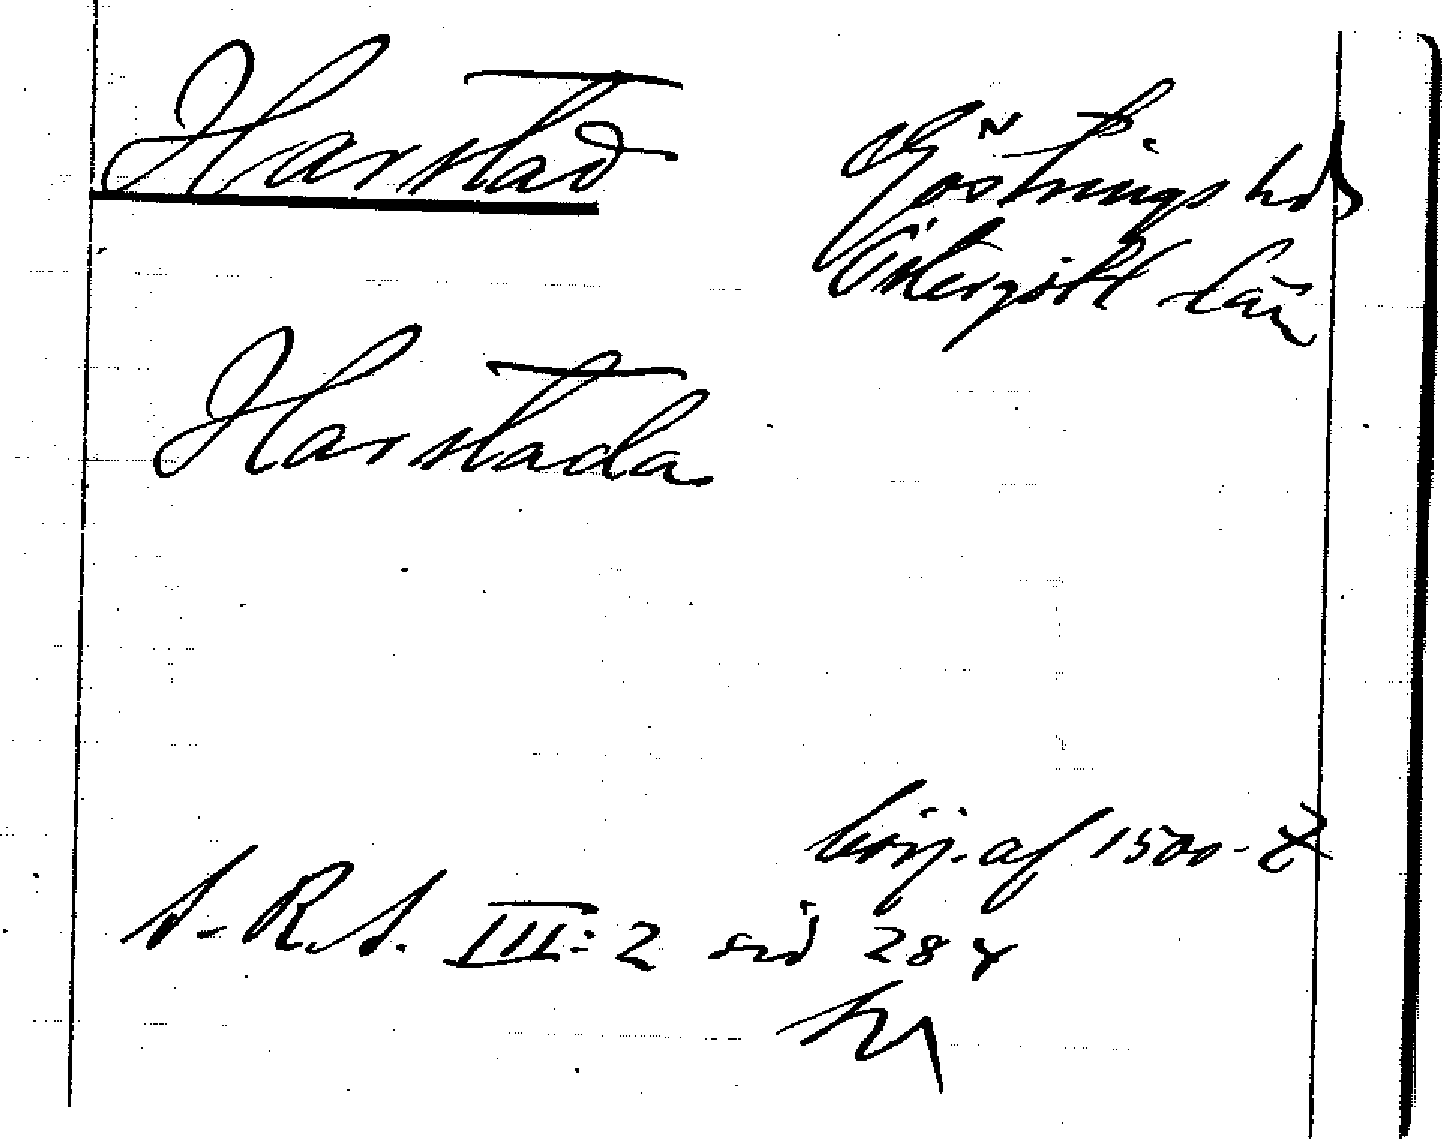 Harstad
Göstrings hd
Östergötl län
Harstada
börj. af 1500-t
S. R. S. III: 2 sid 287